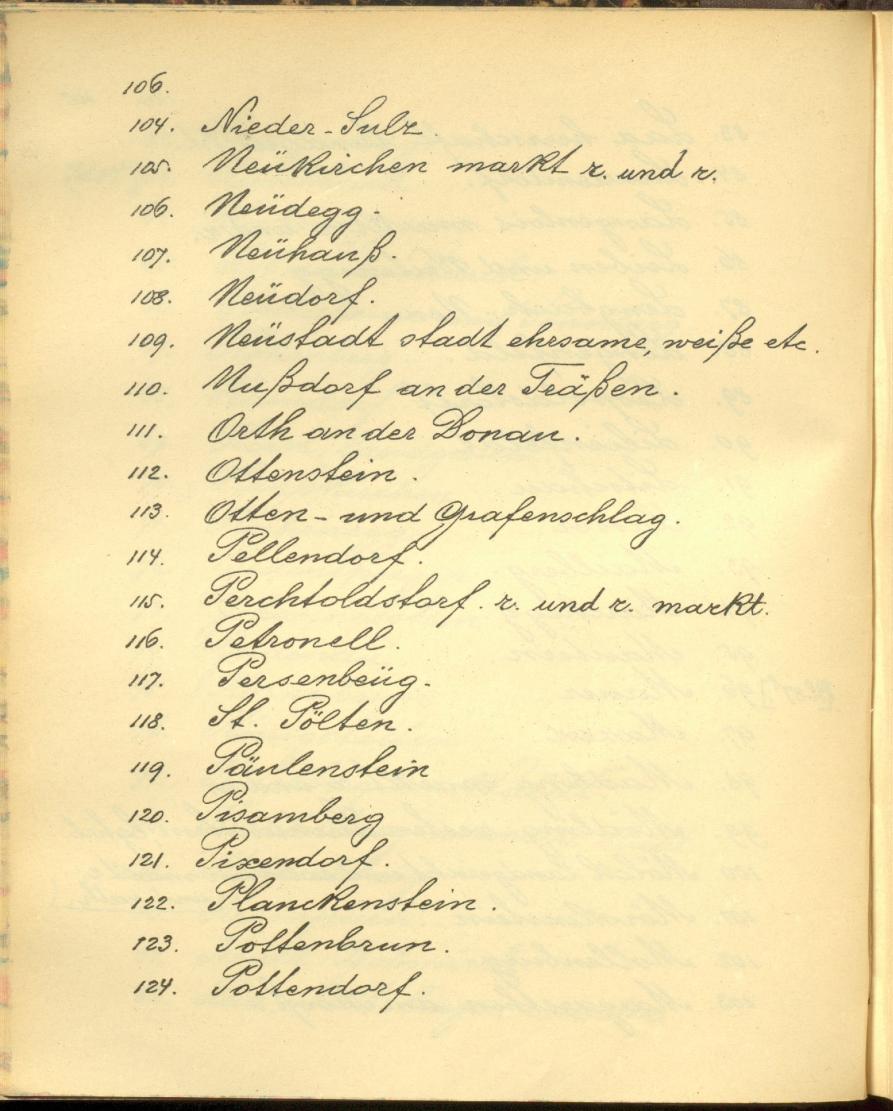 106.
104. Nieder-Sulz
105. Neükirchen markt r. und r.
106. Neüdegg.
107. Neühauß.
108. Neüdorf.
109. Neüstadt stadt ehrsame, weiße etc.
110. Nußdorf an der Träßen.
111. Orth an der Donau.
112. Ottenstein.
113. Otten- und Grafenschlag.
114. Pellendorf.
115. Perchtoldstorf. r. und r. markt.
116. Petronell.
117. Persenbeüg.
118. St. Pölten.
119. Päulenstein
120. Pisamberg
121. Pixendorf.
122. Planckenstein.
123. Pottenbrun.
124. Pottendorf.